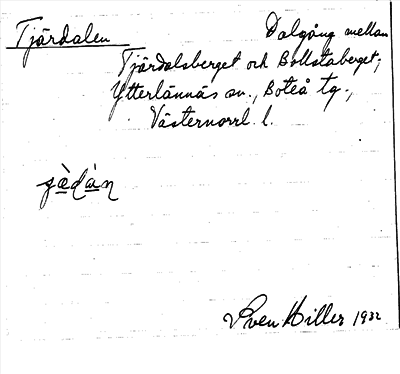 Tjärdalen Dalgång mellan
Tjärdalsberget och Bollstaberget;
Ytterlännäs sn., Boteå tg.,
Västernorrl. l.
Sven Hiller 1932